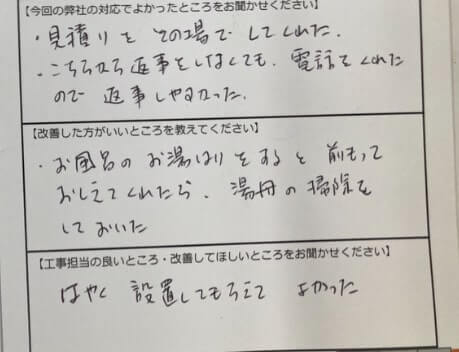 【今回の弊社の対応でよかったところをお聞かせください】
・見積りをその場でしてくれた.
・こちらから返事をしなくても、電話をくれた
ので返事しやすかった.
【改善した方がいいところを教えてください】
・お風呂のお湯はりをすると前もって
おしえてくれたら、湯舟の掃除を
しておいた
【工事担当の良いところ・改善してほしいところをお聞かせください】
はやく設置してもらえて よかった